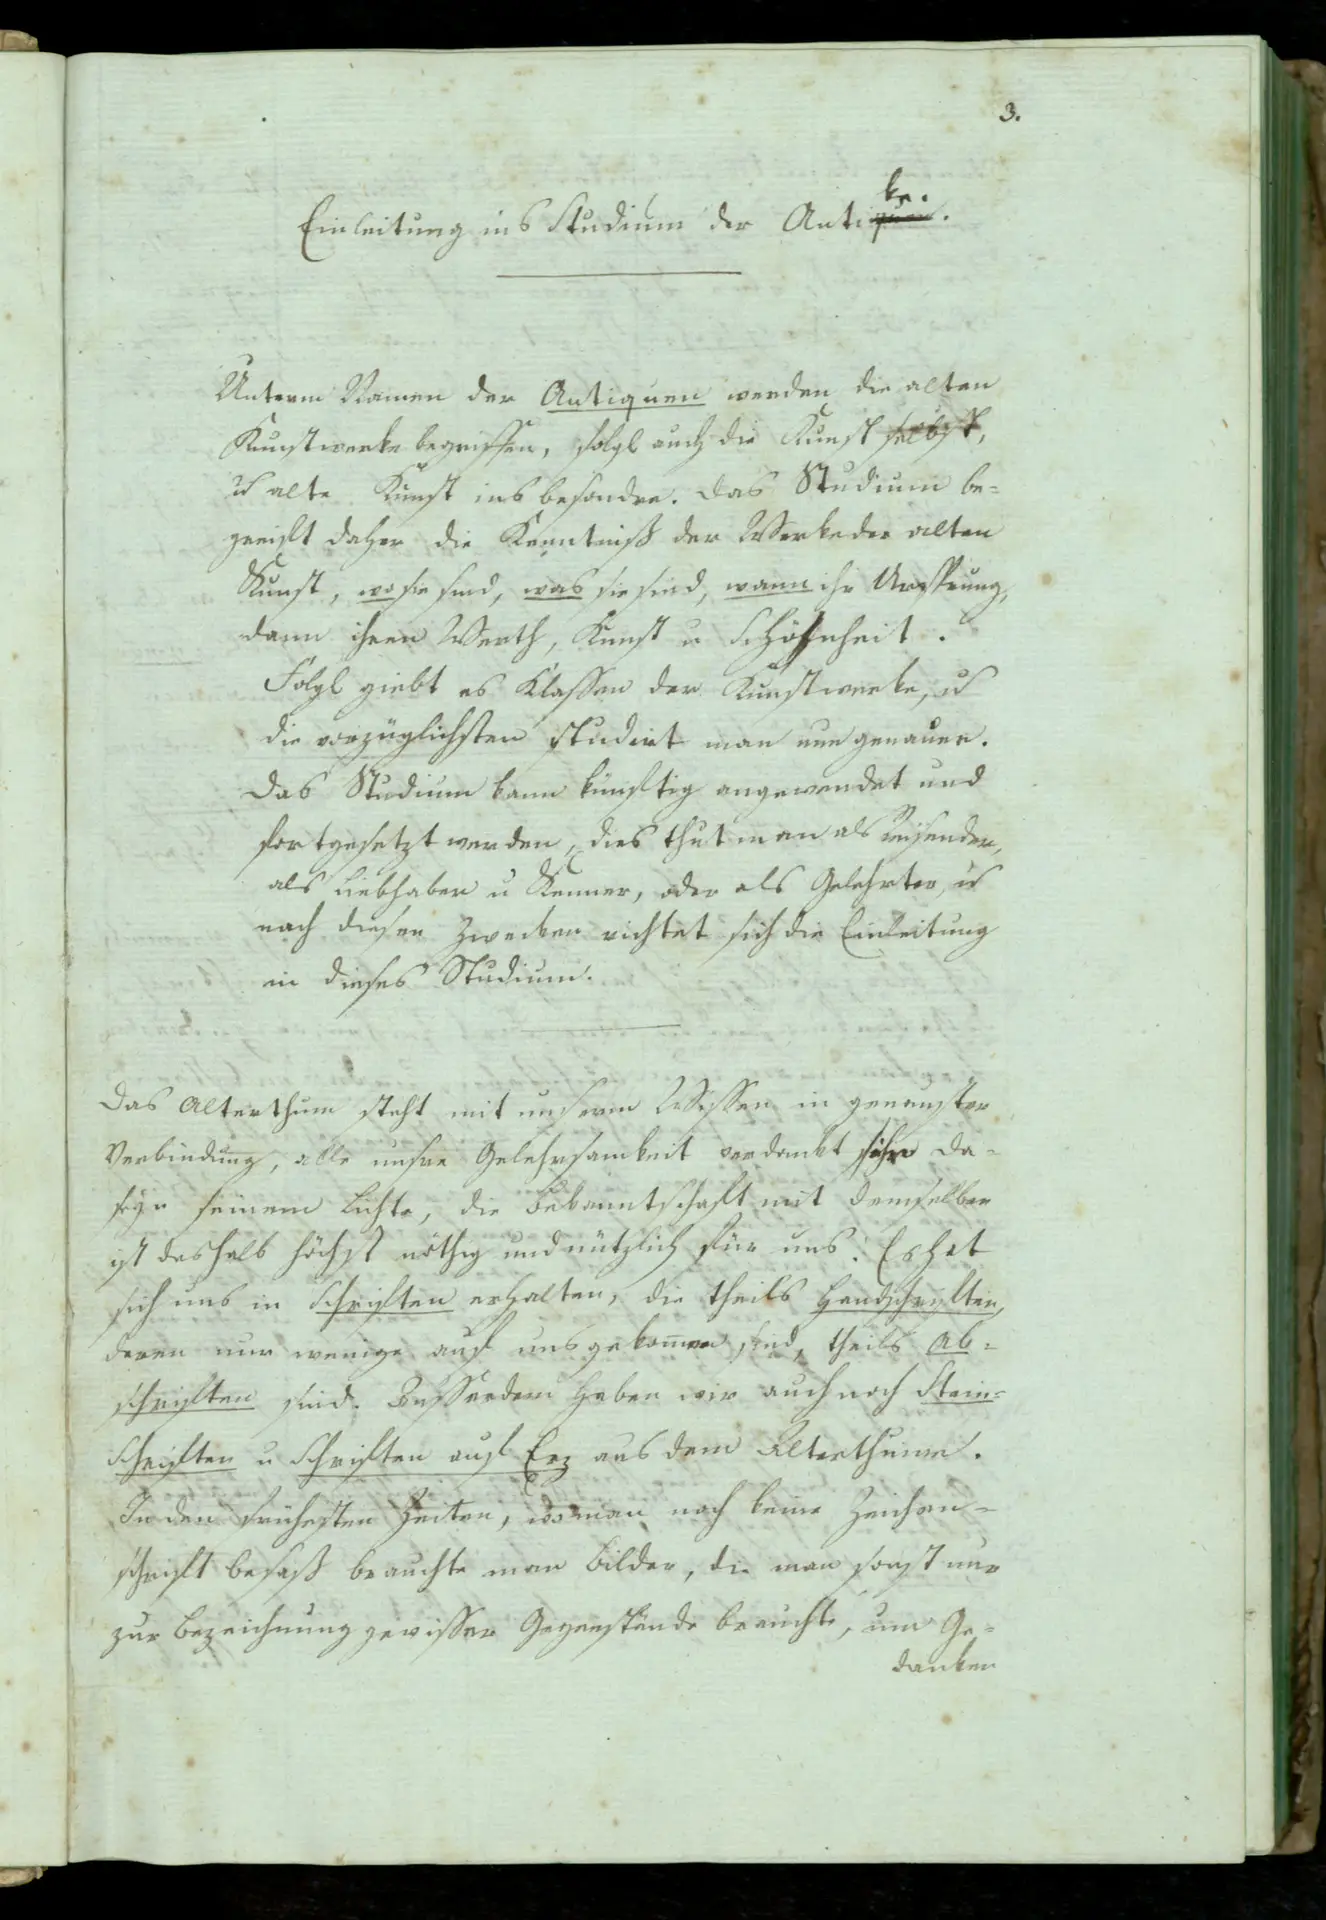 3.
Einleitung ins Studium der Antike.
Unterm Namen der Antiquen werden die alten
Kunstwerke begriffen, folgl auch die Kunst selbst,
u alte Kunst ins besondre. Das Studium be-
greift daher die Kenntniß der Werke der alten
Kunst, wo sie sind, was sie sind, wann ihr Ursprung,
dann ihren Werth, Kunst u Schönheit.
Folgl giebt es Klassen der Kunstwerke, u
die vorzüglichsten studirt man nun genauer.
Das Studium kann künftig angewendet und
fortgesetzt werden, dies thut man als Reisender,
als Liebhaber u Kenner, oder als Gelehrter, u
nach diesen Zwecken richtet sich die Einleitung
in dieses Studium.
Das Alterthum steht mit unserm Wissen in genauster
Verbindung, alle unsre Gelehrsamkeit verdankt ihr Da-
seyn seinem Lichte, die Bekanntschaft mit demselben
ist deshalb höchst nöthig und nützlich für uns. Es hat
sich uns in Schriften erhalten, die theils Handschriften,
deren nur wenige auf uns gekommen sind, theils Ab-
schriften sind. Ausserdem haben wir auch noch Stein-
schriften u Schriften auf Erz aus dem Alterthume.
In den frühesten Zeiten, wo man noch keine Zeichen-
schrift besaß brauchte man Bilder, die man sonst nur
zur Bezeichnung gewisser Gegenstände brauchte, um Ge-
danken